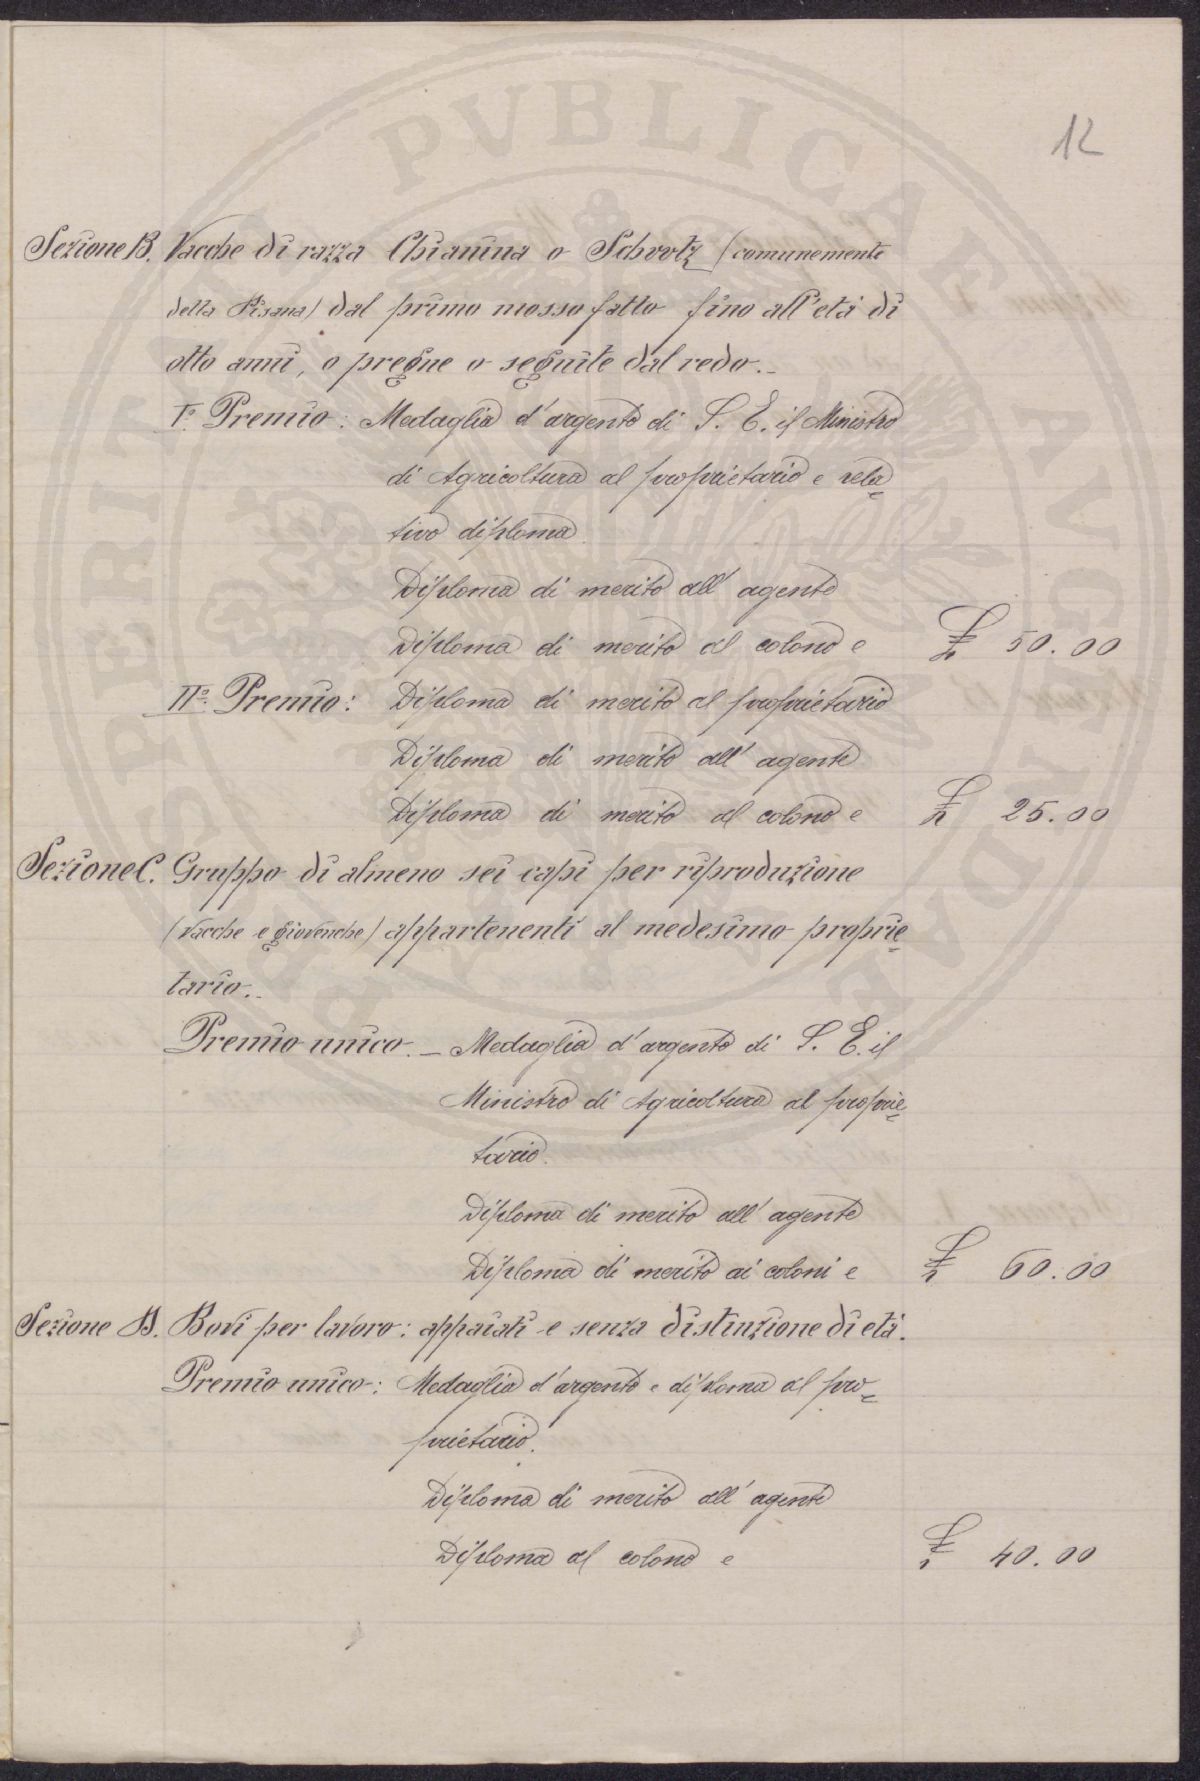 12
Sezione B. Vacche di razza Chianina o Schwtz (comunemente
detta Pisana) dal primo mosso fatto fino all'età di
otto anni, o pregne o seguite dal redo.-
I.º Premio: Medaglia d'argento di S. E. il Ministro
di Agricoltura al proprietario e rela=
tivo diploma.
Diploma di merito all'agente
Diploma di merito al colono e £ 50.00
IIº. Premio: Diploma di merito al proprietario
Diploma di merito all'agente
Diploma di merito al colono e £ 25.00
Sezione C. Gruppo di almeno sei capi per riproduzione
(vacche e giovenche) appartenenti al medesimo proprie=
tario..
Premio unico. - Medaglia d'argento di S. E. il
Ministro di Agricoltura al proprie=
tario.
Diploma di merito all'agente
Diploma di merito ai coloni e £ 60.00
Sezione D. Bovi per lavoro: appaiati e senza distinzione di età.
Premio unico: Medaglia d'argento e diploma al pro=
prietario.
Diploma di merito all'agente
Diploma al colono e £ 40.00
PROSPERITATI PVBLICAE AVGENDAE